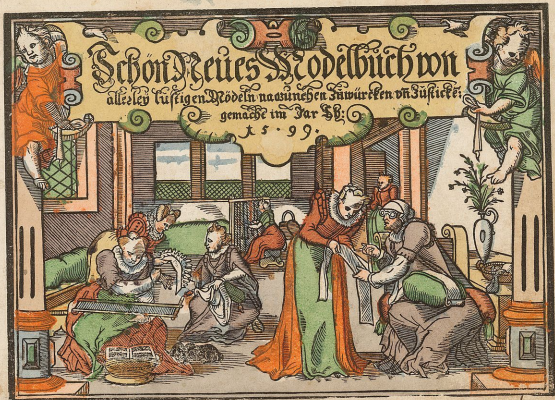 Schön Neües Modelbüch von
allerley lustigen Mödeln naczunehen Zuwürcken vn̄ Züsticke:
gemacht im Jar Ch:
1599.